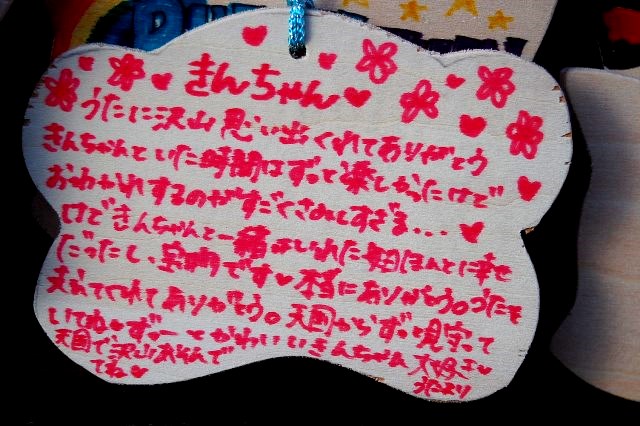 きんちゃん
うたに沢山思い出くれてありがとう
きんちゃんといた時間はずっと楽しかったけど
おわかれするのがすごくさみしすぎる...
けどきんちゃんと一緒にいれた毎日ほんとに幸せ
だったし、宝物です 本当にありがとう。うたも
てくれてありがとう。天国からずっと見守って
いてね ずーっとかわいいきんちゃん 大好き
天国で沢山あそんで
てね
うたより